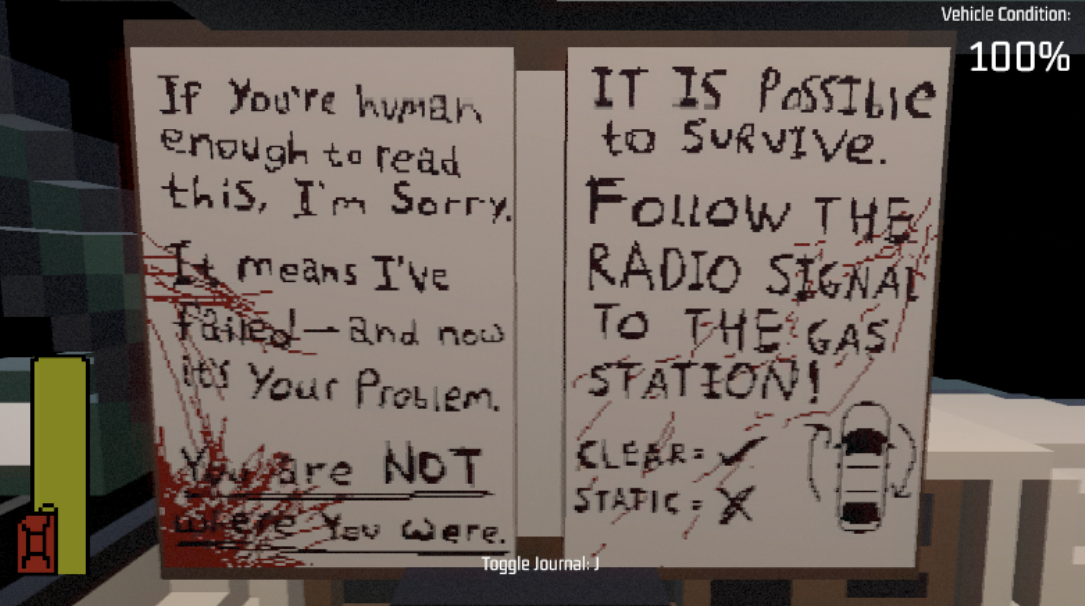 Vehicle Condition:
100%
If You're human
enough to read
this, I'm Sorry.
It means I've
failed—and now
it's Your Problem.
You are NOT
where You were.
IT IS PoSSIble
to SURVIVe.
FOllOW THE
RADIO SIGNAL
TO THE GAS
STATION!
CLEAR= ✓
STATIC = X
Toggle Journal: J